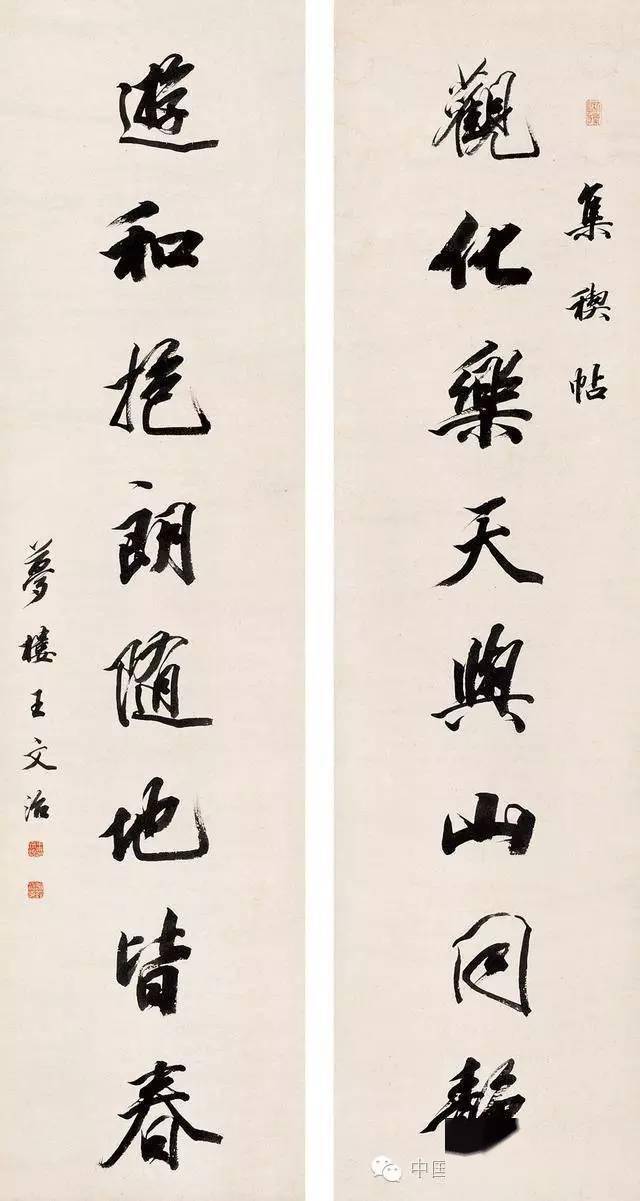 集稧帖
觀化樂天與山同靜
遊和抱朗隨地皆春
夢樓王文治
中国